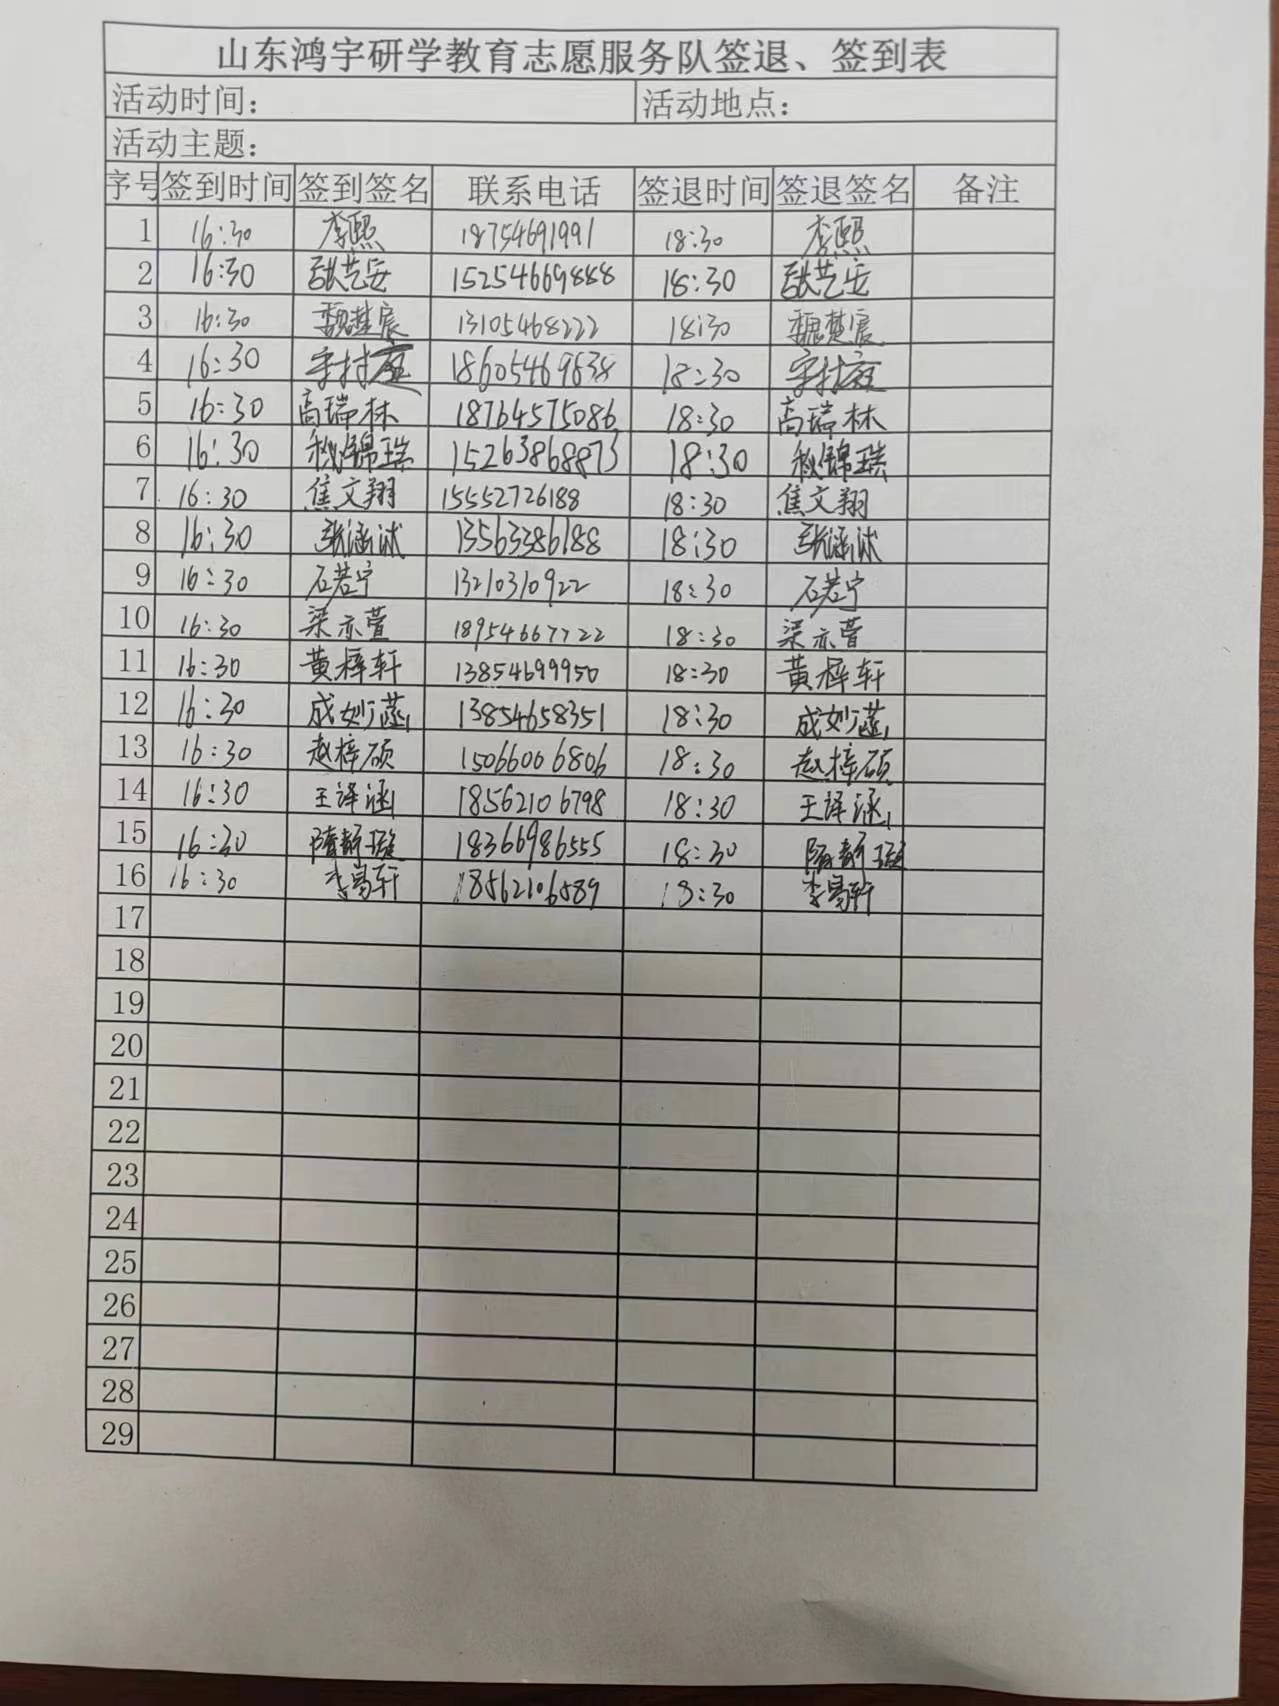 山东鸿宇研学教育志愿服务队签退、签到表
活动时间： 活动地点：
活动主题：
序号 签到时间 签到签名 联系电话 签退时间 签退签名 备注
1 16:30 李熙 18754691991 18:30 李熙
2 16:30 张艺安 15254669888 18:30 张艺安
3 16:30 魏楚宸 13105468222 18:30 魏楚宸
4 16:30 18605469838 18:30
5 16:30 高瑞林 18764575086 18:30 高瑞林
6 16:30 秋锦瑞 15263868873 18:30 秋锦瑞
7 16:30 焦文翔 15552726188 18:30 焦文翔
8 16:30 张涵沭 13563386188 18:30 张涵沭
9 16:30 石若宁 13210310922 18:30 石若宁
10 16:30 梁亦萱 18954667722 18:30 梁亦萱
11 16:30 黄梓轩 13854699950 18:30 黄梓轩
12 16:30 成妙菡 13854658351 18:30 成妙菡
13 16:30 赵梓硕 15066006806 18:30 赵梓硕
14 16:30 王译涵 18562106798 18:30 王译涵
15 16:30 隋静璇 18366986555 18:30 隋静璇
16 16:30 李昜轩 18562106589 18:30 李昜轩
17
18
19
20
21
22
23
24
25
26
27
28
29